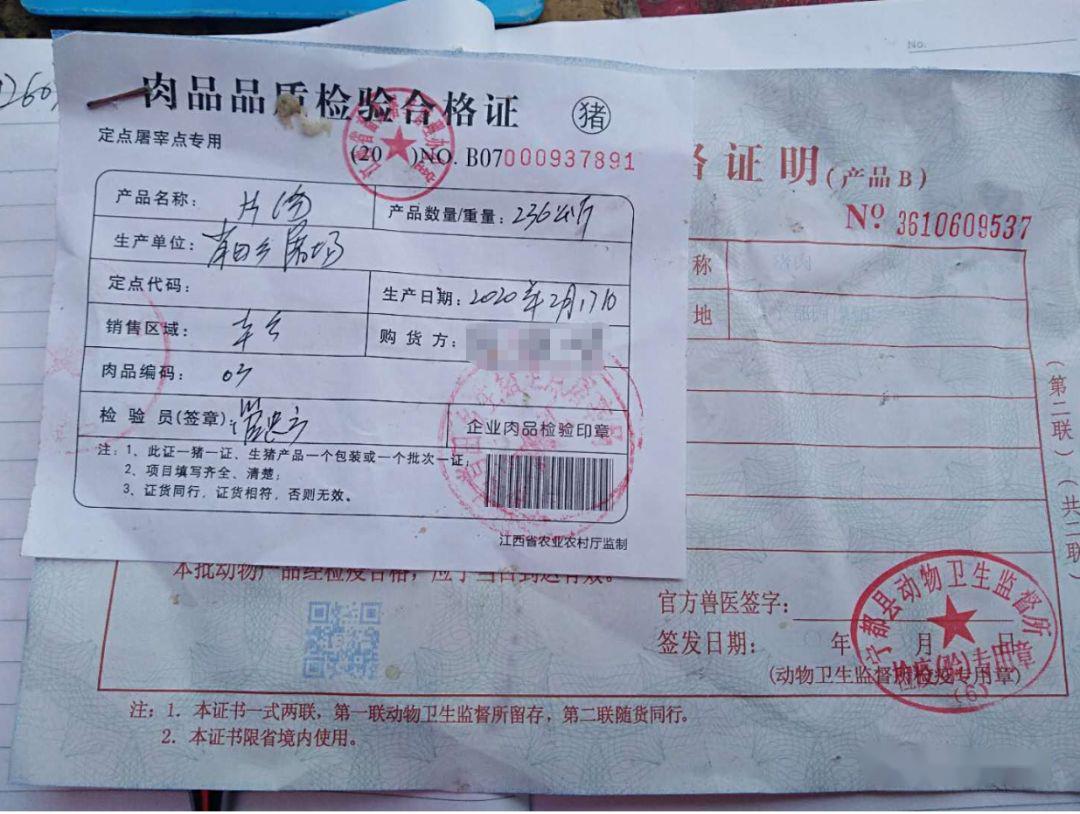 肉品品质检验合格证 猪
定点屠宰点专用
(20 )NO. B07000937891
产品名称: 片
产品数量/重量: 236公斤
生产单位:
定点代码:
生产日期: 2020年2月17日
销售区域: 本乡
购货方:
肉品编码: 03
检验员(签章):
企业肉品检验印章
注: 1、此证一猪一证、生猪产品一个包装或一个批次一证;
2、项目填写齐全、清楚;
3、证货同行, 证货相符, 否则无效。
江西省农业农村厅监制
证明(产品B)
Nº 3610609537
称 猪肉
地
(第二联)(共二联)
本批动物产品经检疫合格, 应于当日到达有效。
官方兽医签字:
签发日期: 年 月 日
(动物卫生监督所检疫专用章)
宁都县动物卫生监督所
检疫(验)专用章
(6)
注: 1. 本证书一式两联, 第一联动物卫生监督所留存, 第二联随货同行。
2. 本证书限省境内使用。
No.